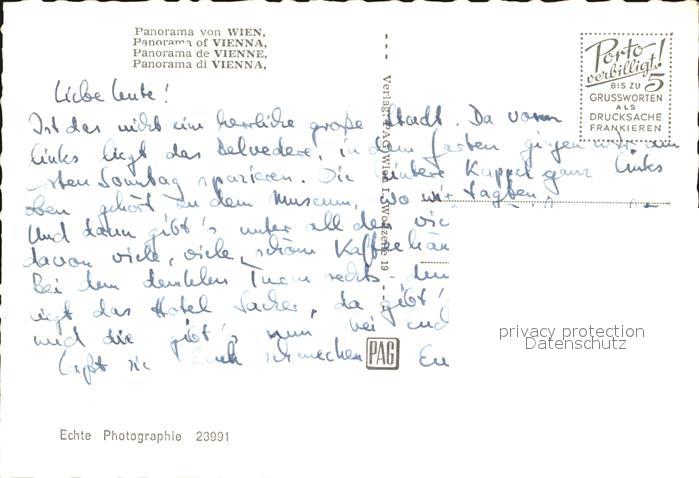 Panorama von WIEN,
Panorama of VIENNA,
Panorama de VIENNE,
Panorama di VIENNA,
Porto
verbilligt!
BIS ZU 5
GRUSSWORTEN
ALS
DRUCKSACHE
FRANKIEREN
Liebe Leute!
Ist das nicht eine herrliche große Stadt. Da vorn
links liegt das Belvedere, in dem Garten gingen wir
sten Sonntag spazieren. Die hintere Kuppel ganz links
oben gehört zu dem Museum, wo wir tagten.
Und dann gibt's unter all den
davon viele, viele, schöne Kaffeehäu
Bei dem dunklen Turm rechts
das Hotel Sacher, da gibt's
und die gibt's nun bei Euch
Laßt sie Euch schmecken Eu
Verlag: PAG, Wien I., Wollzeile 19
PAG
privacy protection
Datenschutz
Echte Photographie 23991